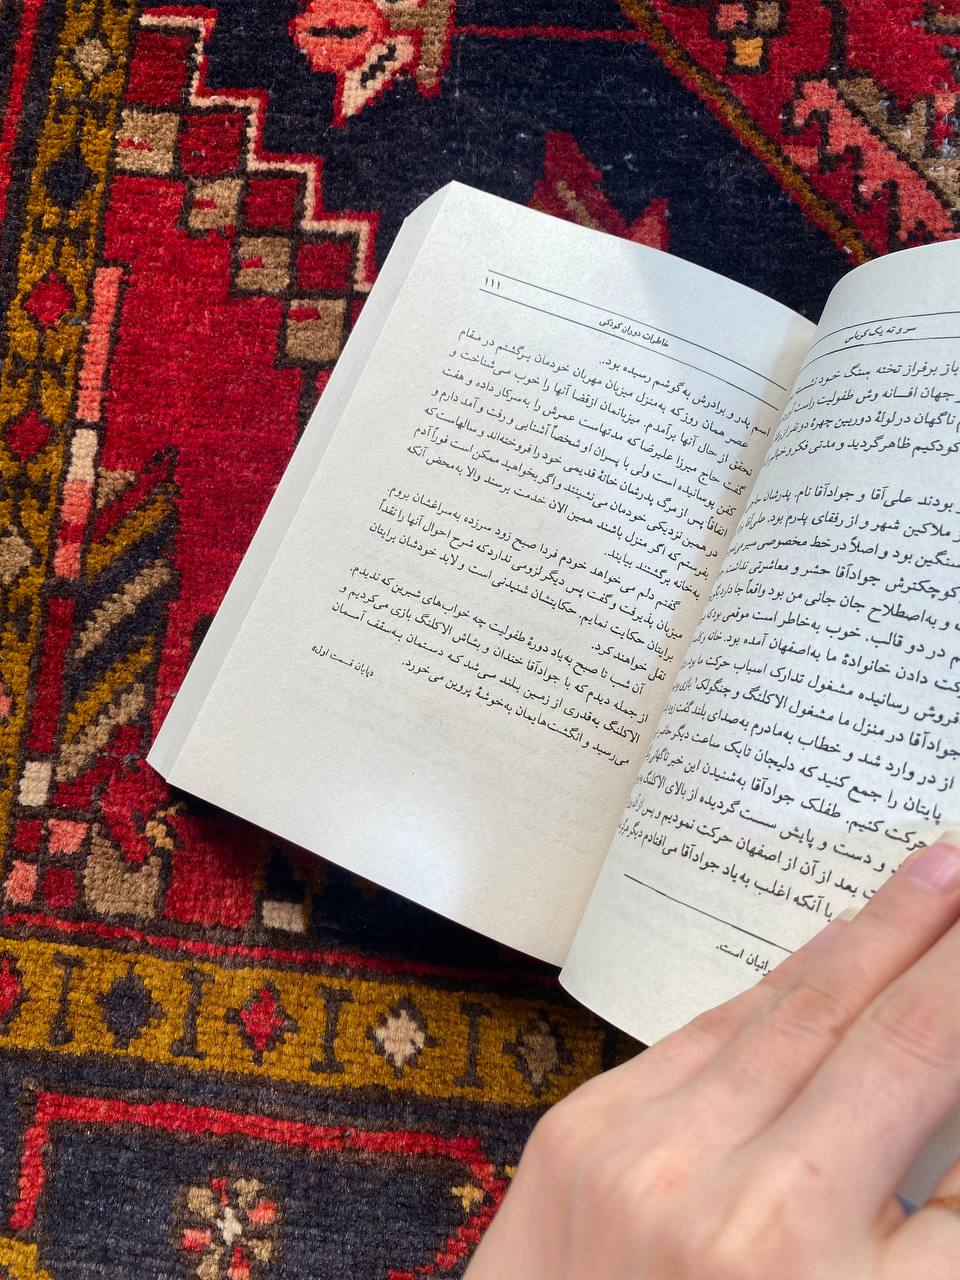 سر و ته یک کرباس
باز برفراز تخته سنگ خود نشسته
جهان افسانه وش طفولیت راست
ناگهان در لولهٔ دوربین چهرهٔ دو نفر از
کودکیم ظاهر گردید و مدتی فکر و خیال
بودند علی‌آقا و جوادآقا نام. پدرشان
از ملاکین شهر و از رفقای پدرم بود. علی‌آقا
سنگین بود و اصلاً در خط مخصوصی سیر
کوچکترش جوادآقا حشر و معاشرتی نداشت
و به‌اصطلاح جان جانی من بود واقعاً جا دارد
در دو قالب. خوب به‌خاطر است موقعی بود
حرکت دادن خانوادهٔ ما به‌اصفهان آمده بود. خانه و
فروش رسانیده مشغول تدارک اسباب حرکت ما بود
جوادآقا در منزل ما مشغول الاکلنگ و جنگولک بازی
از در وارد شد و خطاب به‌مادرم به‌صدای بلند گفت
پایتان را جمع کنید که دلیجان تا یک ساعت دیگر حاضر
حرکت کنیم. طفلک جوادآقا به‌شنیدن این خبر ناگهانی
و دست و پایش سست گردیده از بالای الاکلنگ
بعد از آن از اصفهان حرکت نمودیم و پس از آن
با آنکه اغلب به‌یاد جوادآقا می‌افتادم دیگر
است.
۱۱۱
خاطرات دوران کودکی
اسم پدر و برادرش به‌گوشم رسیده بود..
عصر همان روز که به‌منزل میزبان مهربان خودمان برگشتم در مقام
تحقیق از حال آنها برآمدم. میزبانمان ازقضا آنها را خوب می‌شناخت و
گفت حاج میرزا علیرضا که مدتهاست عمرش را به‌سرکار داده و هفت
کفن پوسانیده است ولی با پسران او شخصاً آشنایی و رفت و آمد دارم و
اتفاقاً پس از مرگ پدرشان خانهٔ قدیمی خود را فروخته‌اند و سالهاست که
در همین نزدیکی خودمان می‌نشینند و اگر بخواهید ممکن است فوراً آدم
بفرستم که اگر منزل باشند همین الان خدمت برسند والا به‌محض آنکه
به‌خانه برگشتند بیایند.
گفتم دلم می خواهد خودم فردا صبح زود سرزده به‌سراغشان بروم.
میزبان پذیرفت و گفت پس دیگر لزومی ندارد که شرح احوال آنها را نقدا
برایتان حکایت نمایم. حکایتشان شنیدنی است و لابد خودشان برایتان
نقل خواهند کرد.
آن شب تا صبح به‌یاد دورهٔ طفولیت چه خواب‌های شیرین که ندیدم.
از جمله دیدم که با جوادآقا خندان و بشاش الاکلنگ بازی می‌کردیم و
الاکلنگ به‌قدری از زمین بلند می‌شد که دستمان به‌سقف آسمان
می‌رسید و انگشت‌هایمان به‌خوشهٔ پروین می‌خورد.
«پایان قسمت اول»